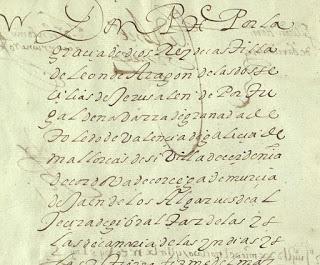 DON PHe Por la
gracia de dios Rey de castilla
de Leon de Aragon de las dos se
cilias de Jerusalen de Portu
gal de navarra de granada de
toledo de valencia de galicia de
mallorcas de sevilla de cerdenia
de cordova de corcega de murcia
de Jaen de los Algarves de al
Jecira de gibraltar de las ys
las de canaria de las yndias ys
las y tierra firme del mar